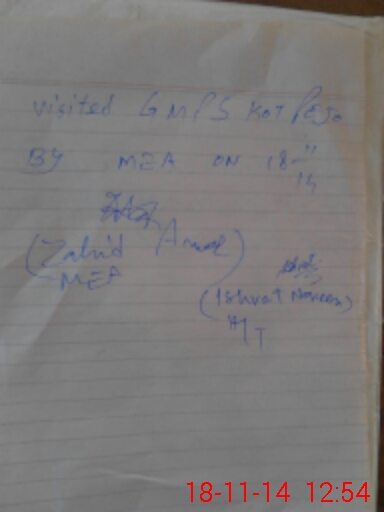 visited GMPS KOT PEJO
BY MEA ON 18-11
14
(Zahid Anwar)
MEA
(Ishrat Nasreen)
HT
18-11-14 12:54